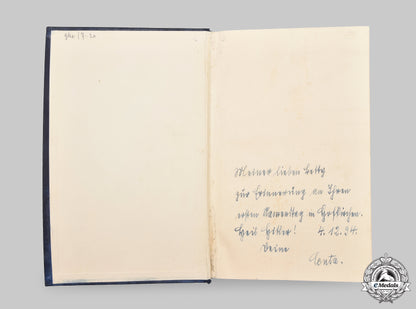 Meiner lieben Betty
zur Erinnerung an Ihren
ersten Namenstag in Hofkirchen.
Heil Hitler! 4.12.34.
Deine
eMedals